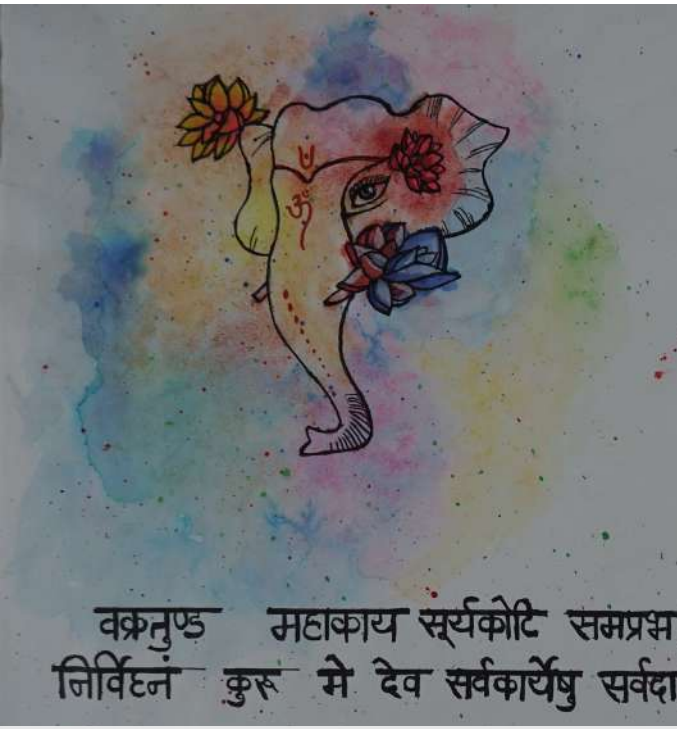 वक्रतुण्ड महाकाय सूर्यकोटि समप्रभ
निर्विघ्नं कुरू मे देव सर्वकार्येषु सर्वदा